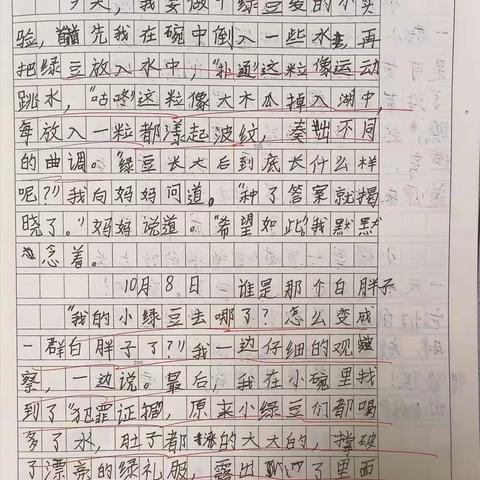 今天，我要做个绿豆发的小实
验，首先我在碗中倒入一些水，再
把绿豆放入水中，“扑通”这粒像运动
跳水，“咕咚”这粒像大木瓜掉入湖中，
每放入一粒都漾起波纹，奏出不同
的曲调。“绿豆长大后到底长什么样
呢？”我向妈妈问道。“种了答案就揭
晓了。”妈妈说道。“希望如此。”我默默
念着。
10月8日 谁是那个白胖子
“我的小绿豆去哪了？怎么变成
一群白胖子了？”我一边仔细的观
察，一边说。最后，我在小碗里找
到了“犯罪证据”，原来小绿豆们都喝
多了水，肚子都涨的大大的，撑破
了漂亮的绿礼服，露出了里面